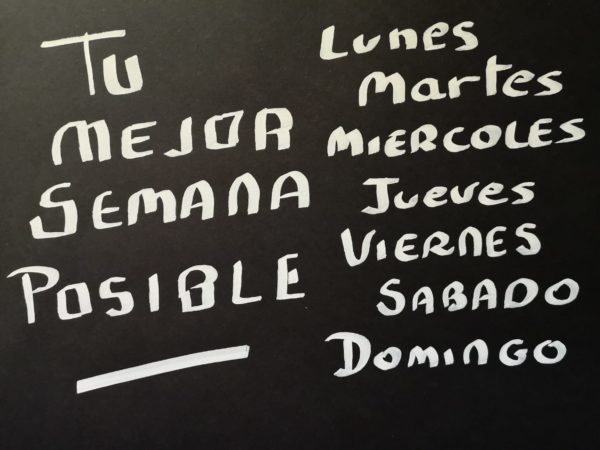 Tu
MEJOR
SEMANA
POSIBLE
Lunes
Martes
MIERCOLES
Jueves
VIERNES
SABADO
DOMINGO